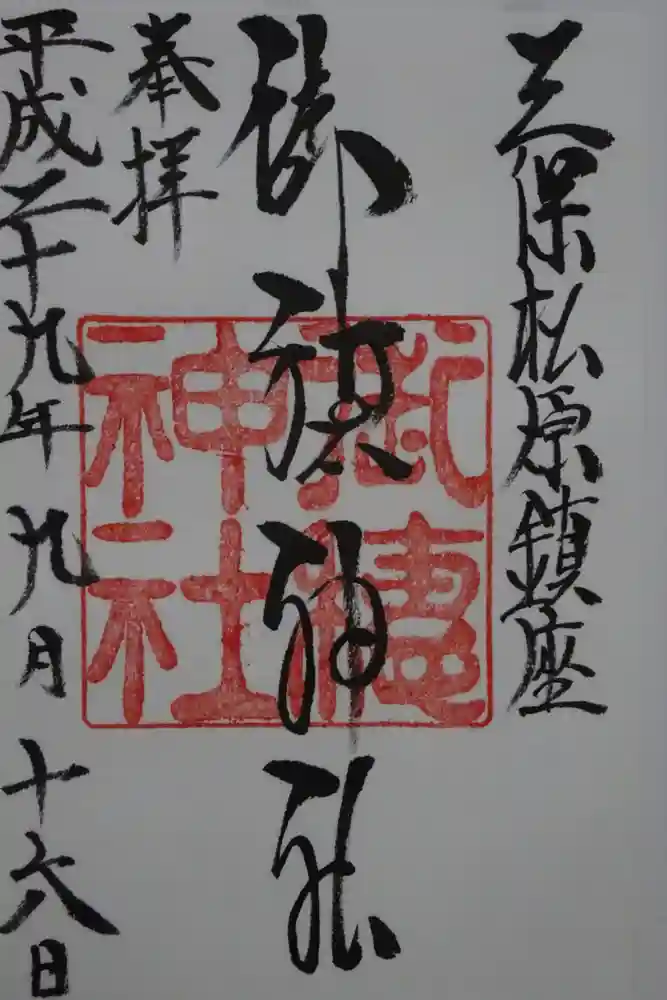 三保松原鎮座
御穂神社
御穂神社
奉拝
平成二十九年九月十六日